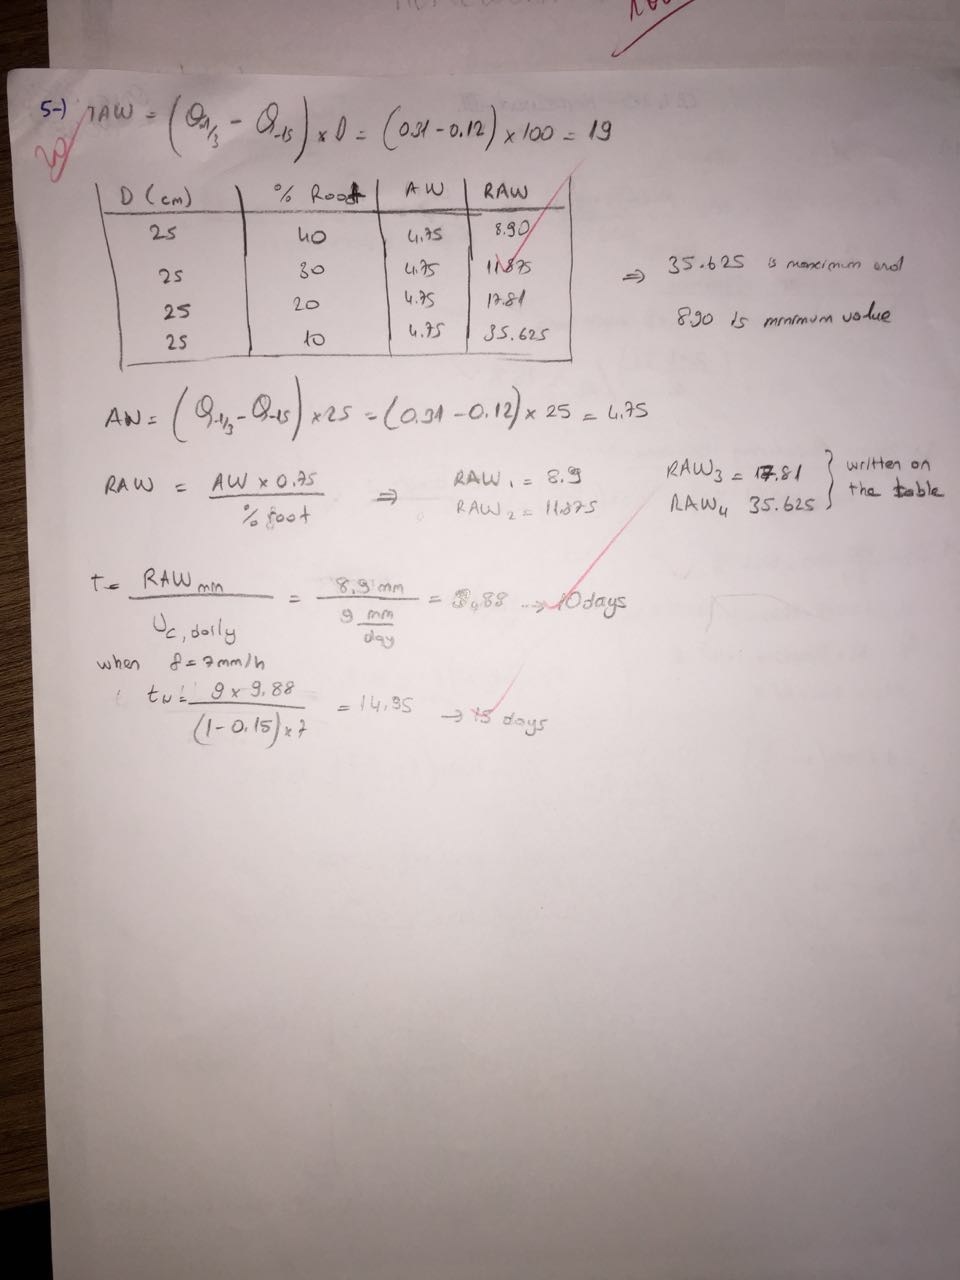 5-) TAW = (θ-1/3 - θ-15) x D = (0.31 - 0.12) x 100 = 19
20
D (cm) % Root AW RAW
25 40 4.75 8.90
25 30 4.75 11.875
25 20 4.75 17.81
25 10 4.75 35.625
⇒ 35.625 is maximum and
8.90 is minimum value
AW = (θ-1/3 - θ-15) x 25 = (0.31 - 0.12) x 25 = 4.75
RAW = AW x 0.75 / % root ⇒ RAW1 = 8.9 RAW3 = 17.81 } written on
RAW2 = 11.875 RAW4 35.625 the table
t = RAW min / Uc, daily = 8.9 mm / 9 mm/day = 9.88 → 10 days
when f = 7 mm/h
tN = 9 x 9.88 / (1 - 0.15) x 7 = 14.95 → 15 days